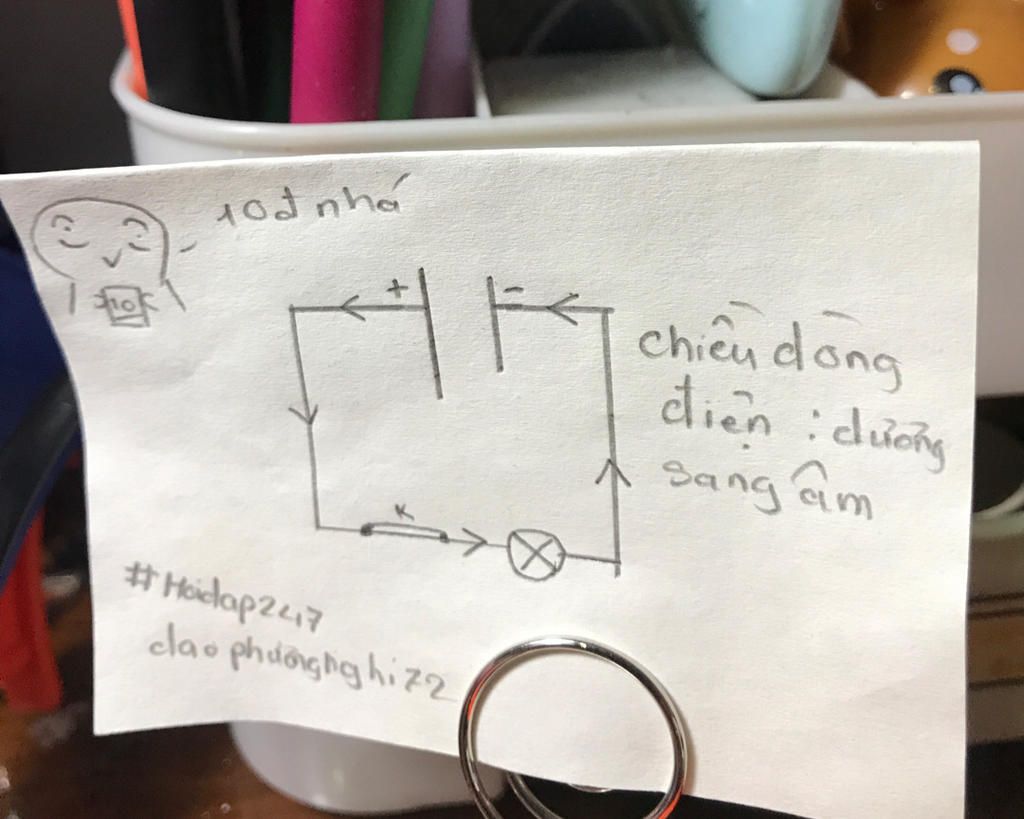 10đ nhá
10
+ -
chiều dòng
điện : dương
sang âm
K
#Hoidap247
daophuongnghi72